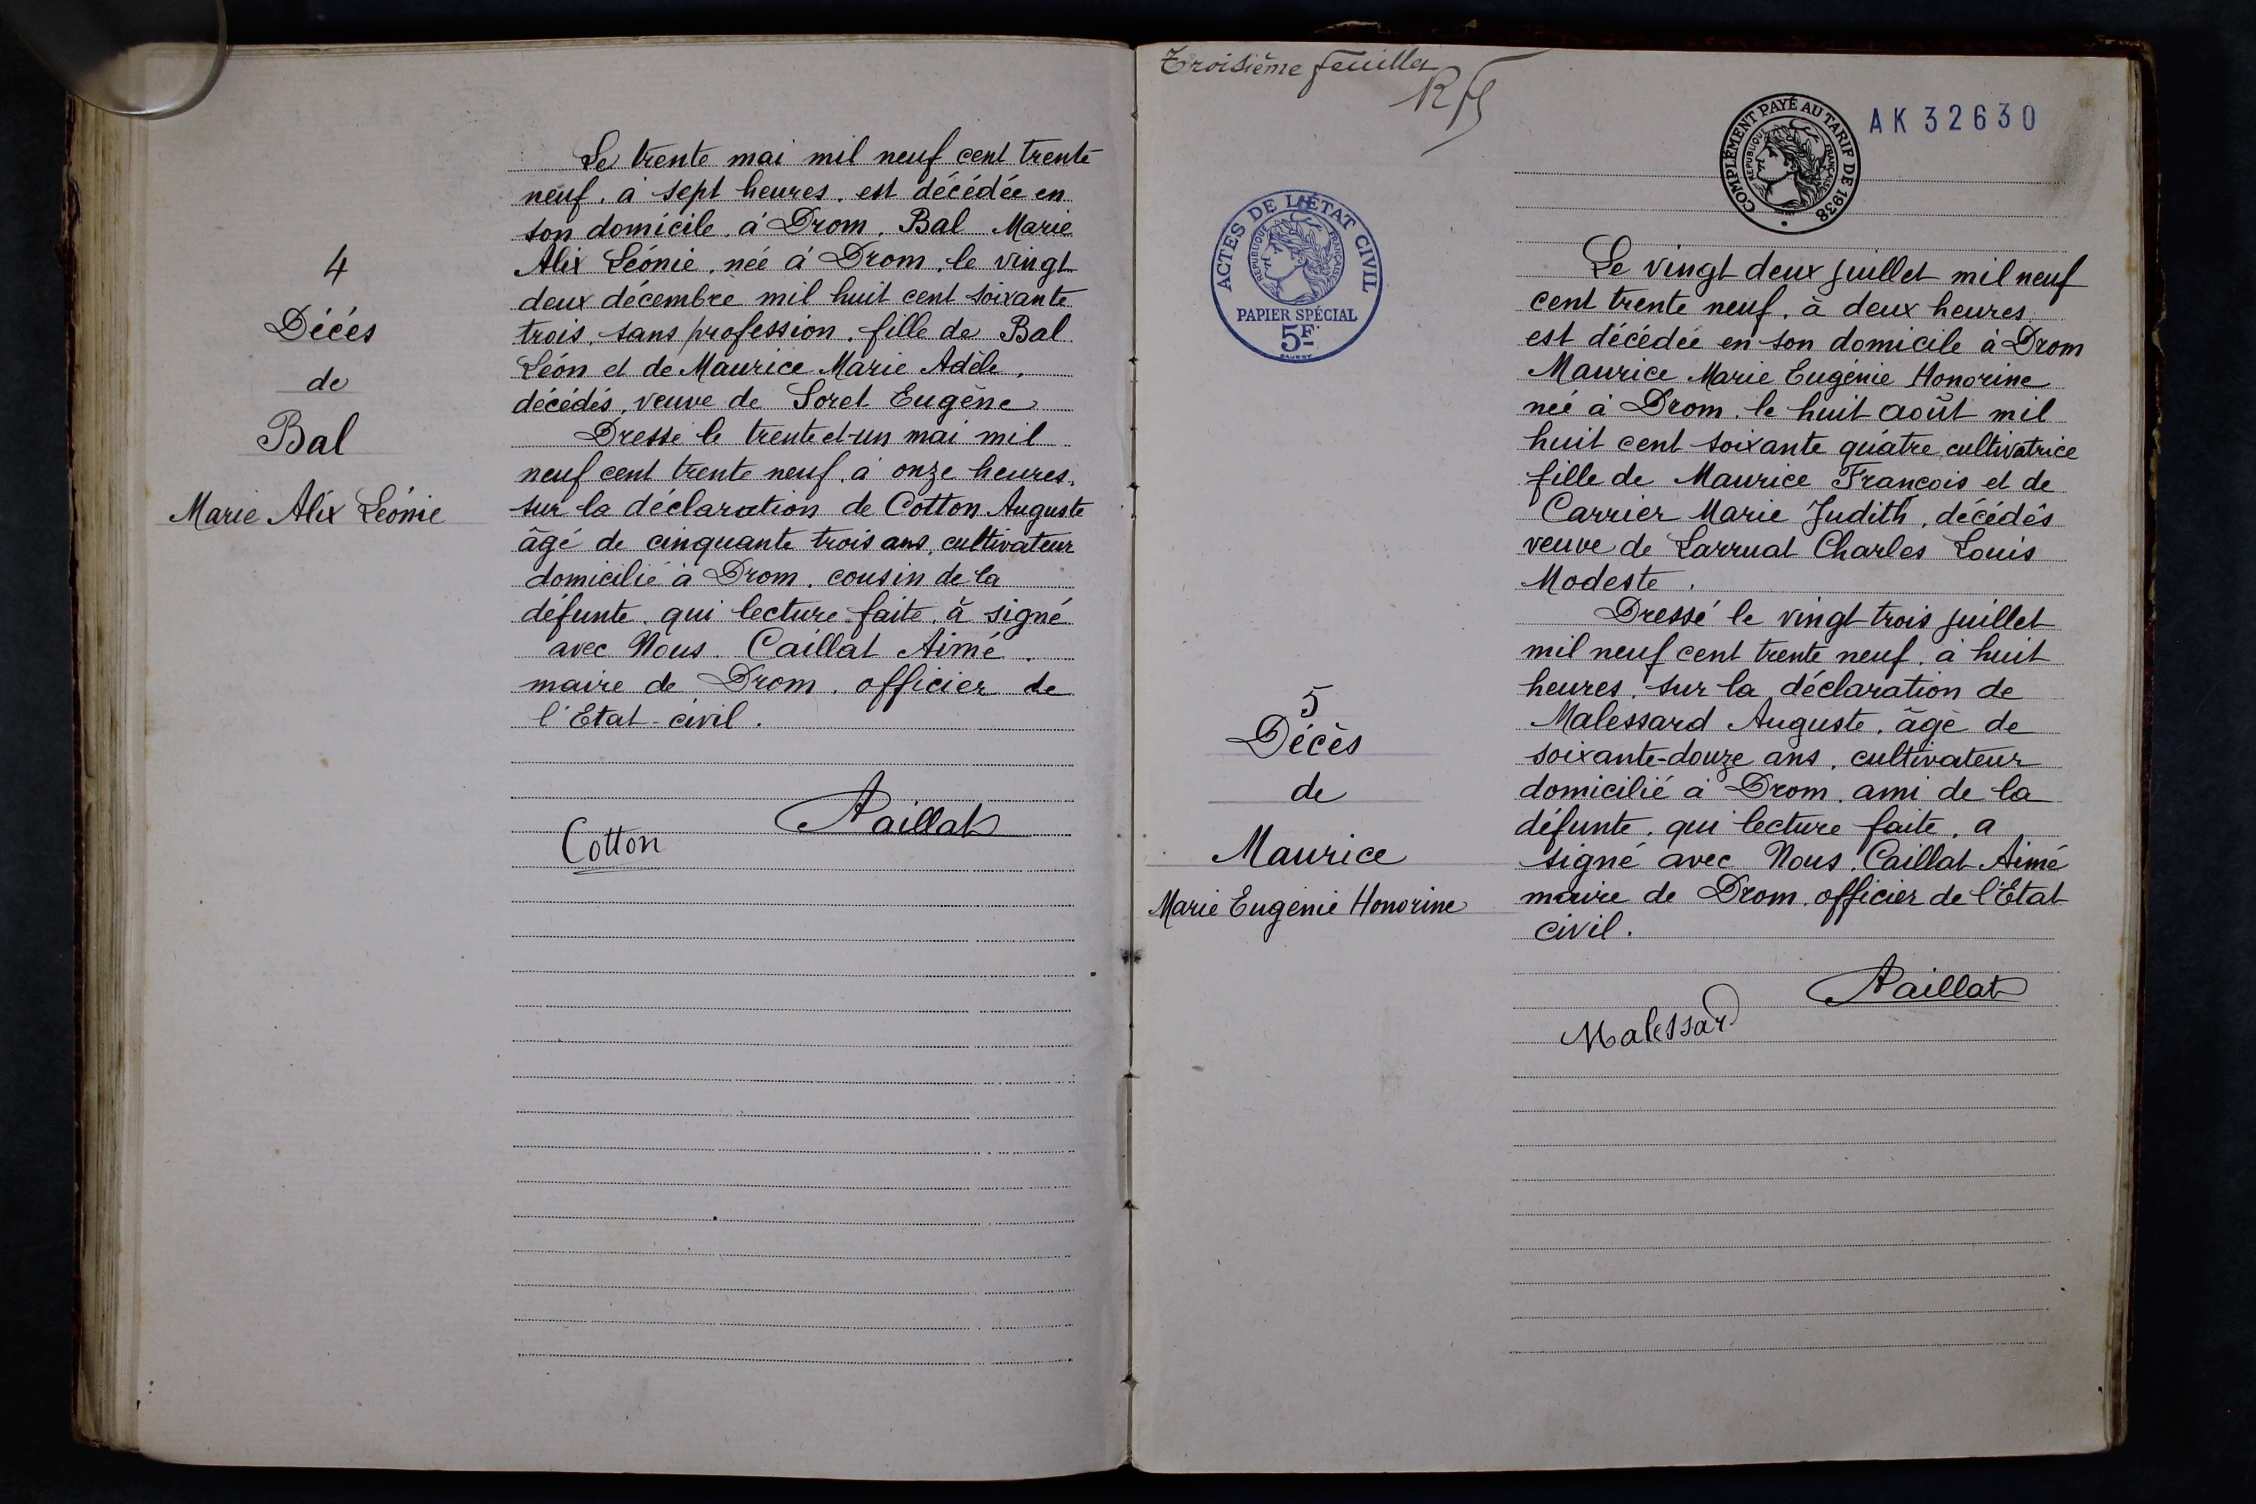 4
Décés
de
Bal
Marie Alix Léonie
Le trente mai mil neuf cent trente
neuf. à sept heures. est décédée en
son domicile. à Drom. Bal Marie
Alix Léonie. née à Drom. le vingt
deux décembre mil huit cent soixante
trois. sans profession. fille de Bal
Léon et de Maurice Marie Adèle.
décédés, veuve de Soret Eugène
Dressé le trente et-un mai mil
neuf cent trente neuf. à onze heures.
sur la déclaration de Cotton Auguste
âgé de cinquante trois ans, cultivateur
domicilié à Drom. cousin de la
défunte. qui lecture faite. à signé
avec Nous. Caillat Aimé.
maire de Drom. officier de
l'Etat-civil.
Cotton
ACaillat
Troisième feuillet
ACTES DE L'ÉTAT CIVIL
RÉPUBLIQUE FRANÇAISE
PAPIER SPÉCIAL
5F
COMPLÉMENT PAYÉ AU TARIF DE 1938
RÉPUBLIQUE FRANÇAISE
AK 32630
5
Décès
de
Maurice
Marie Eugénie Honorine
Le vingt deux juillet mil neuf
cent trente neuf. à deux heures
est décédée en son domicile à Drom
Maurice Marie Eugénie Honorine
née à Drom. le huit août mil
huit cent soixante quatre, cultivatrice
fille de Maurice François et de
Carrier Marie Judith, décédés
veuve de Larruat Charles Louis
Modeste.
Dressé le vingt trois juillet
mil neuf cent trente neuf. à huit
heures. sur la déclaration de
Malessard Auguste. âgé de
soixante-douze ans, cultivateur
domicilié à Drom. ami de la
défunte. qui lecture faite. a
signé avec Nous. Caillat Aimé
maire de Drom. officier de l'Etat
civil.
ACaillat
Malessard